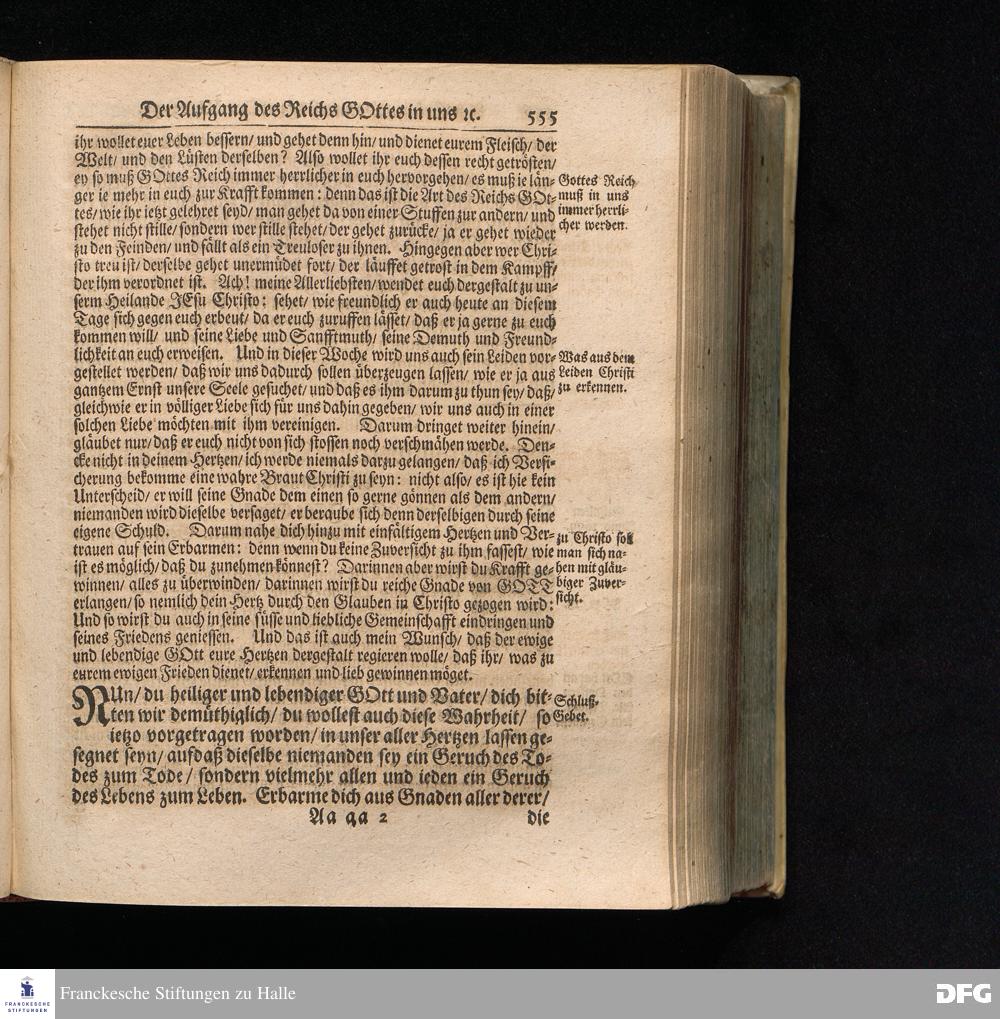 Der Aufgang des Reichs GOttes in uns ꝛc. 555
ihr wollet euer Leben bessern/ und gehet denn hin/ und dienet eurem Fleisch/ der
Welt/ und den Lüsten derselben? Also wollet ihr euch dessen recht getrösten/
ey so muß GOttes Reich immer herrlicher in euch hervorgehen/ es muß ie län-
ger ie mehr in euch zur Krafft kommen: denn das ist die Art des Reichs GOt-
tes/ wie ihr ietzt gelehret seyd/ man gehet da von einer Stuffen zur andern/ und
stehet nicht stille/ sondern wer stille stehet/ der gehet zurücke/ ja er gehet wieder
zu den Feinden/ und fällt als ein Treuloser zu ihnen. Hingegen aber wer Chri-
sto treu ist/ derselbe gehet unermüdet fort/ der läuffet getrost in dem Kampff/
der ihm verordnet ist. Ach! meine Allerliebsten/ wendet euch dergestalt zu un-
serm Heilande JEsu Christo: sehet/ wie freundlich er auch heute an diesem
Tage sich gegen euch erbeut/ da er euch zuruffen lässet/ daß er ja gerne zu euch
kommen will/ und seine Liebe und Sanfftmuth/ seine Demuth und Freund-
lichkeit an euch erweisen. Und in dieser Woche wird uns auch sein Leiden vor-
gestellet werden/ daß wir uns dadurch sollen überzeugen lassen/ wie er ja aus
gantzem Ernst unsere Seele gesuchet/ und daß es ihm darum zu thun sey/ daß/
gleichwie er in völliger Liebe sich für uns dahin gegeben/ wir uns auch in einer
solchen Liebe möchten mit ihm vereinigen. Darum dringet weiter hinein/
gläubet nur/ daß er euch nicht von sich stossen noch verschmähen werde. Den-
cke nicht in deinem Hertzen/ ich werde niemals darzu gelangen/ daß ich Versi-
cherung bekomme eine wahre Braut Christi zu seyn: nicht also/ es ist hie kein
Unterscheid/ er will seine Gnade dem einen so gerne gönnen als dem andern/
niemanden wird dieselbe versaget/ er beraube sich denn derselbigen durch seine
eigene Schuld. Darum nahe dich hinzu mit einfältigem Hertzen und Ver-
trauen auf sein Erbarmen: denn wenn du keine Zuversicht zu ihm fassest/ wie
ist es möglich/ daß du zunehmen könnest? Darinnen aber wirst du Krafft ge-
winnen/ alles zu überwinden/ darinnen wirst du reiche Gnade von GOTT
erlangen/ so nemlich dein Hertz durch den Glauben in Christo gezogen wird:
Und so wirst du auch in seine süsse und liebliche Gemeinschafft eindringen und
seines Friedens geniessen. Und das ist auch mein Wunsch/ daß der ewige
und lebendige GOtt eure Hertzen dergestalt regieren wolle/ daß ihr/ was zu
eurem ewigen Frieden dienet/ erkennen und lieb gewinnen möget.
NUn/ du heiliger und lebendiger GOtt und Vater/ dich bit-
ten wir demüthiglich/ du wollest auch diese Wahrheit/ so
ietzo vorgetragen worden/ in unser aller Hertzen lassen ge-
segnet seyn/ auf daß dieselbe niemanden sey ein Geruch des To-
des zum Tode/ sondern vielmehr allen und ieden ein Geruch
des Lebens zum Leben. Erbarme dich aus Gnaden aller derer/
Aa aa 2 die
Gottes Reich
muß in uns
immer herrli-
cher werden.
Was aus dem
Leiden Christi
zu erkennen.
zu Christo soll
man sich na-
hen mit gläu-
biger Zuver-
sicht.
Schluß-
Gebet.
FRANCKESCHE
STIFTUNGEN
Franckesche Stiftungen zu Halle
DFG